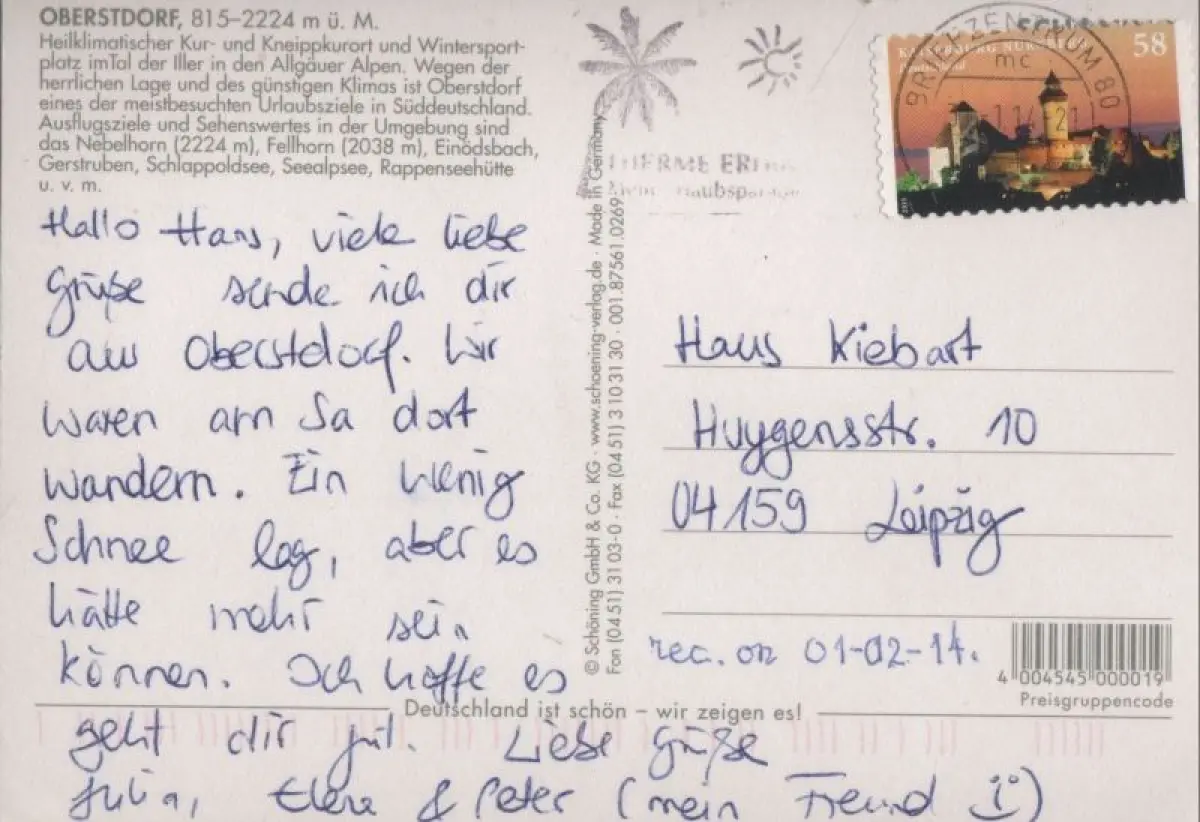 OBERSTDORF, 815–2224 m ü. M.
Heilklimatischer Kur- und Kneippkurort und Wintersport-
platz imTal der Iller in den Allgäuer Alpen. Wegen der
herrlichen Lage und des günstigen Klimas ist Oberstdorf
eines der meistbesuchten Urlaubsziele in Süddeutschland.
Ausflugsziele und Sehenswertes in der Umgebung sind
das Nebelhorn (2224 m), Fellhorn (2038 m), Einödsbach,
Gerstruben, Schlappoldsee, Seealpsee, Rappenseehütte
u. v. m.
Hallo Hans, viele liebe
Grüße sende ich dir
aus Oberstdorf. Wir
waren am Sa dort
wandern. Ein wenig
Schnee lag, aber es
hätte mehr sein
können. Ich hoffe es
geht dir gut. Liebe Grüße
Julia, Elena & Peter (mein Freund)
Deutschland ist schön – wir zeigen es!
© Schöning GmbH & Co. KG · www.schoening-verlag.de · Made in Germany
Fon (04 51) 31 03-0 · Fax (04 51) 3 10 31 30 · 001.87561.0269
THERME
KAISERBURG NÜRNBERG
58
BRIEFZENTRUM 80
mc
Hans Kiebart
Huygensstr. 10
04159 Leipzig
rec. on 01-02-14.
4 004545 000019
Preisgruppencode